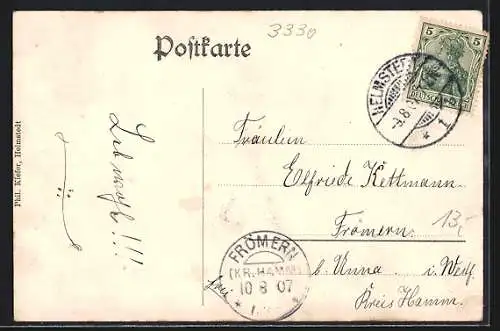 3330
Postkarte
5 5
DEUTSCHES
HELMSTEDT
-9.8.
* 1
Phil. Kiefer, Helmstedt
Leb wohl!!!
Fräulein
Elfriede Kettmann
Frömern.
13,-
b. Unna i. Westf.
Kreis Hamm.
frei
FRÖMERN
(KR. HAMM)
10 8 07
* *